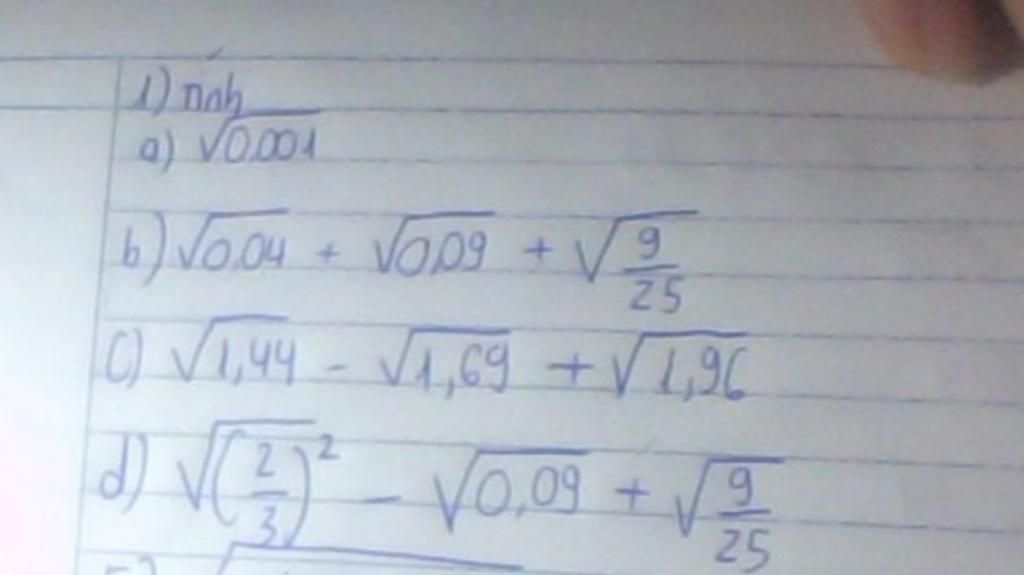 1) Tính
a) √0,001
b) √0,04 + √0,09 + √(9/25)
c) √1,44 - √1,69 + √1,96
d) √(2/3)² - √0,09 + √(9/25)